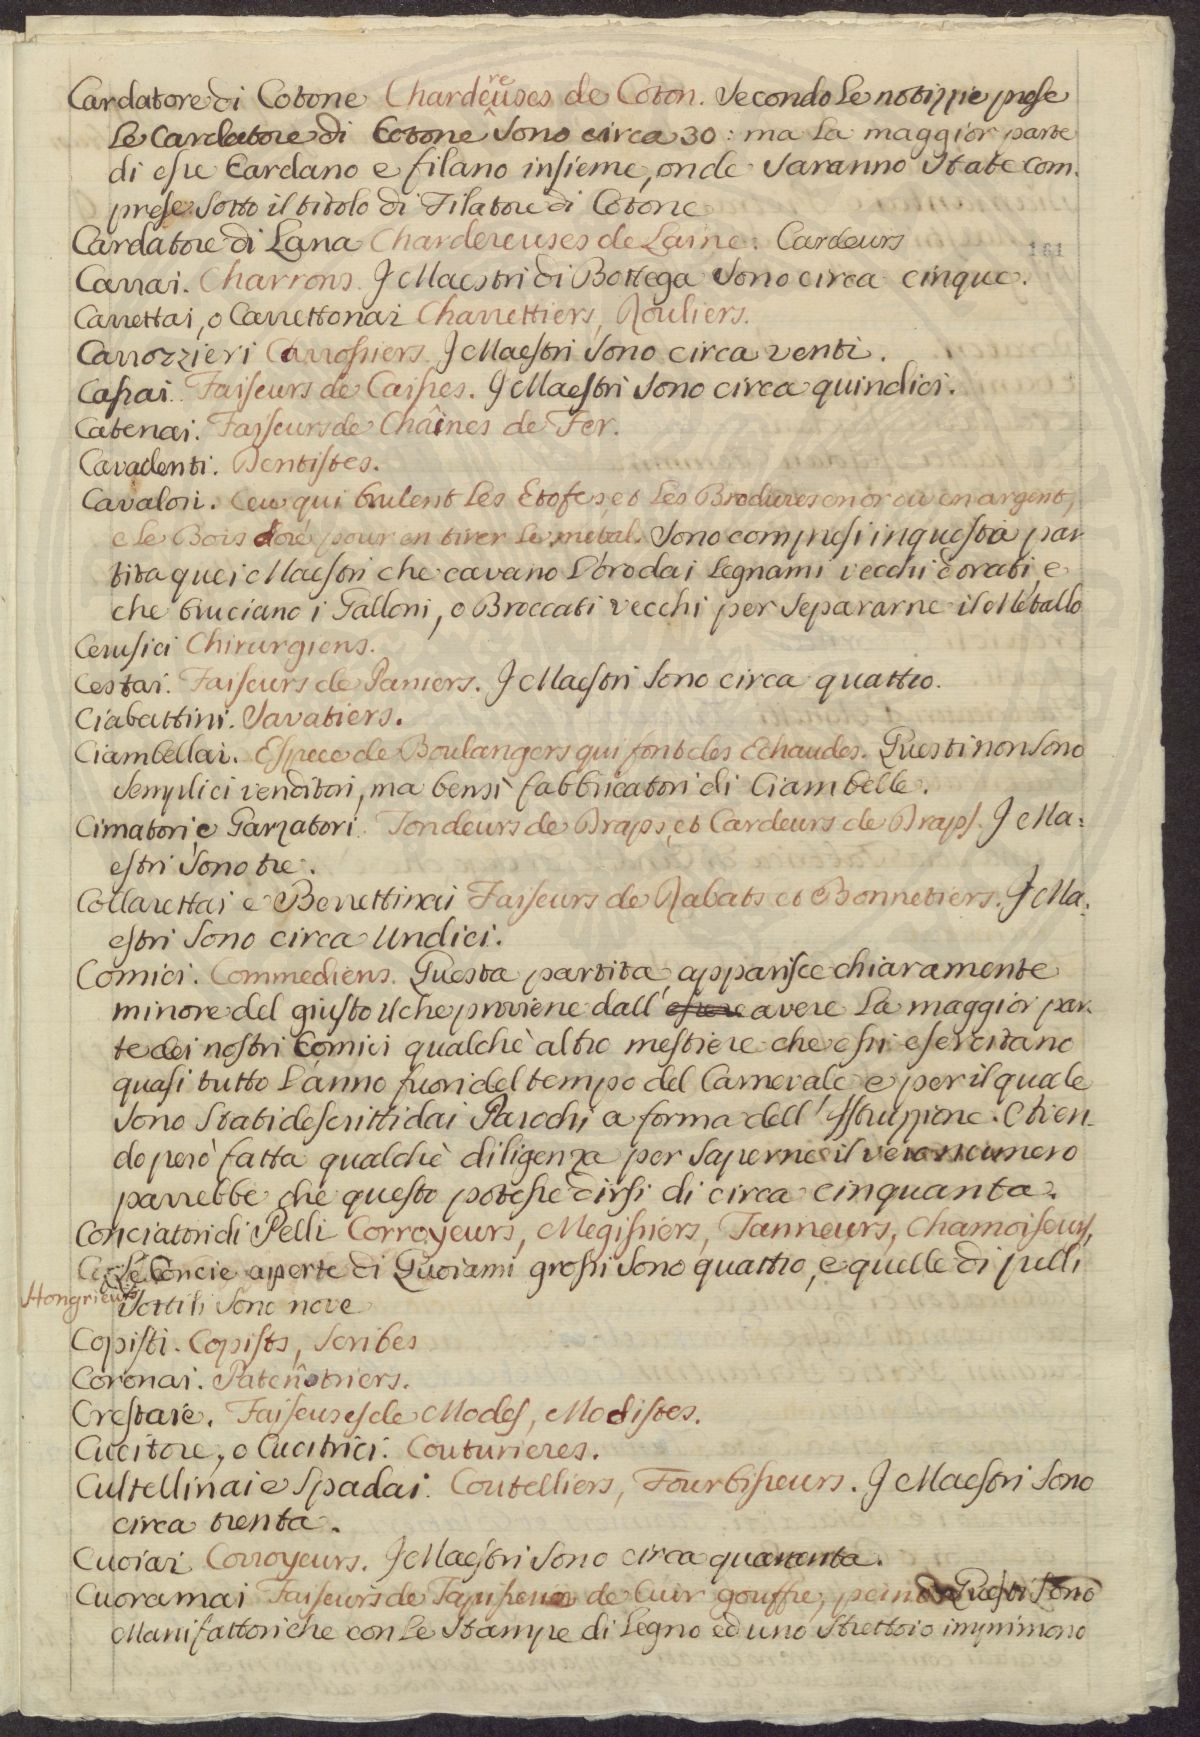 Cardatore di Cotone Chardereuses de Coton. Secondo le notizzie prese
le Cardatore di Cotone sono circa 30: ma la maggior parte
di esse Cardano e filano insieme, onde saranno state com.
prese sotto il titolo di Filatore di Cotone
Cardatore di Lana Chardereuses de Laine. Cardeurs
161
Carrai. Charrons. I Maestri di Bottega sono circa cinque.
Carrettai, o Carrettonai Charrettiers, Rouliers.
Carrozzieri Carrossiers. I Maestri sono circa venti.
Cassai. Faiseurs de Caisses. I Maestri sono circa quindici.
Catenai. Faiseurs de Chaînes de Fer.
Cavadenti. Dentistes.
Cavalori. Ceu qui brulent les Etofes, et les Brodures en or ou en argent,
e le Bois doré pour en tirer le metal. Sono compresi in questa par
tita quei Maestri che cavano l'oro dai Legnami vecchi dorati, e
che bruciano i Galloni, o Broccati vecchi per separarne il Metallo
Cerusici Chirurgiens.
Cestai. Faiseurs de Paniers. I Maestri sono circa quattro.
Ciabattini. Savatiers.
Ciambellai. Espece de Boulangers qui font des Echaudes. Questi non sono
semplici venditori, ma bensì fabbricatori di Ciambelle.
Cimatori, e Garzatori. Tondeurs de Draps, et Cardeurs de Draps. I Ma:
estri sono tre.
Collarettai e Berrettinai Faiseurs de Rabats et Bonnetiers. I Ma:
estri sono circa undici.
Comici. Commediens. Questa partita apparisce chiaramente
minore del giusto il che proviene dall' essere avere la maggior par.
te dei nostri Comici qualchè altro mestiere che essi esercitano
quasi tutto l'anno fuori del tempo del Carnevale e per il quale
sono stati descritti dai Parochi a forma dell' Istruzzione. Essen.
do però fatta qualchè diligenza per saperne il vero numero
parrebbe che questo potesse dirsi di circa cinquanta.
Conciatori di Pelli Corroyeurs, Megissiers, Tanneurs, Chamoiseurs,
Le Concie aperte di Quoiami grossi sono quattro, e quelle di pelli
Hongrieurs
sottili sono nove
Copisti. Copists, Scribes
Coronai. Patenôtriers.
Crestaie. Faiseuses de Modes, Modistes.
Cucitore, o Cucitrici. Couturieres.
Cultellinai e Spadai. Coutelliers, Fourbisseurs. I Maestri sono
circa trenta.
Cuoiai Corroyeurs. I Maestri sono circa quaranta.
Cuoramai Faiseurs de Tapisseries de Cuir gouffre, peind Questi sono
Manifattori che con le Stampe di Legno ed uno Strettoio imprimono